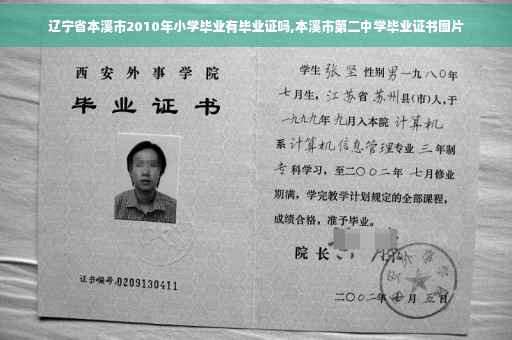 辽宁省本溪市2010年小学毕业有毕业证吗,本溪市第二中学毕业证书图片
西安外事学院
毕业证书
证书编号:0209130411
学生 张坚 性别 男 一九八〇年
七月生, 江苏省 苏州县(市)人,于
一九九九年 九月入本院 计算机
系 计算机信息管理专业 三 年制
专 科学习, 至二〇〇二年 七月修业
期满, 学完教学计划规定的全部课程,
成绩合格, 准予毕业。
院长
二〇〇二年 月 五 日